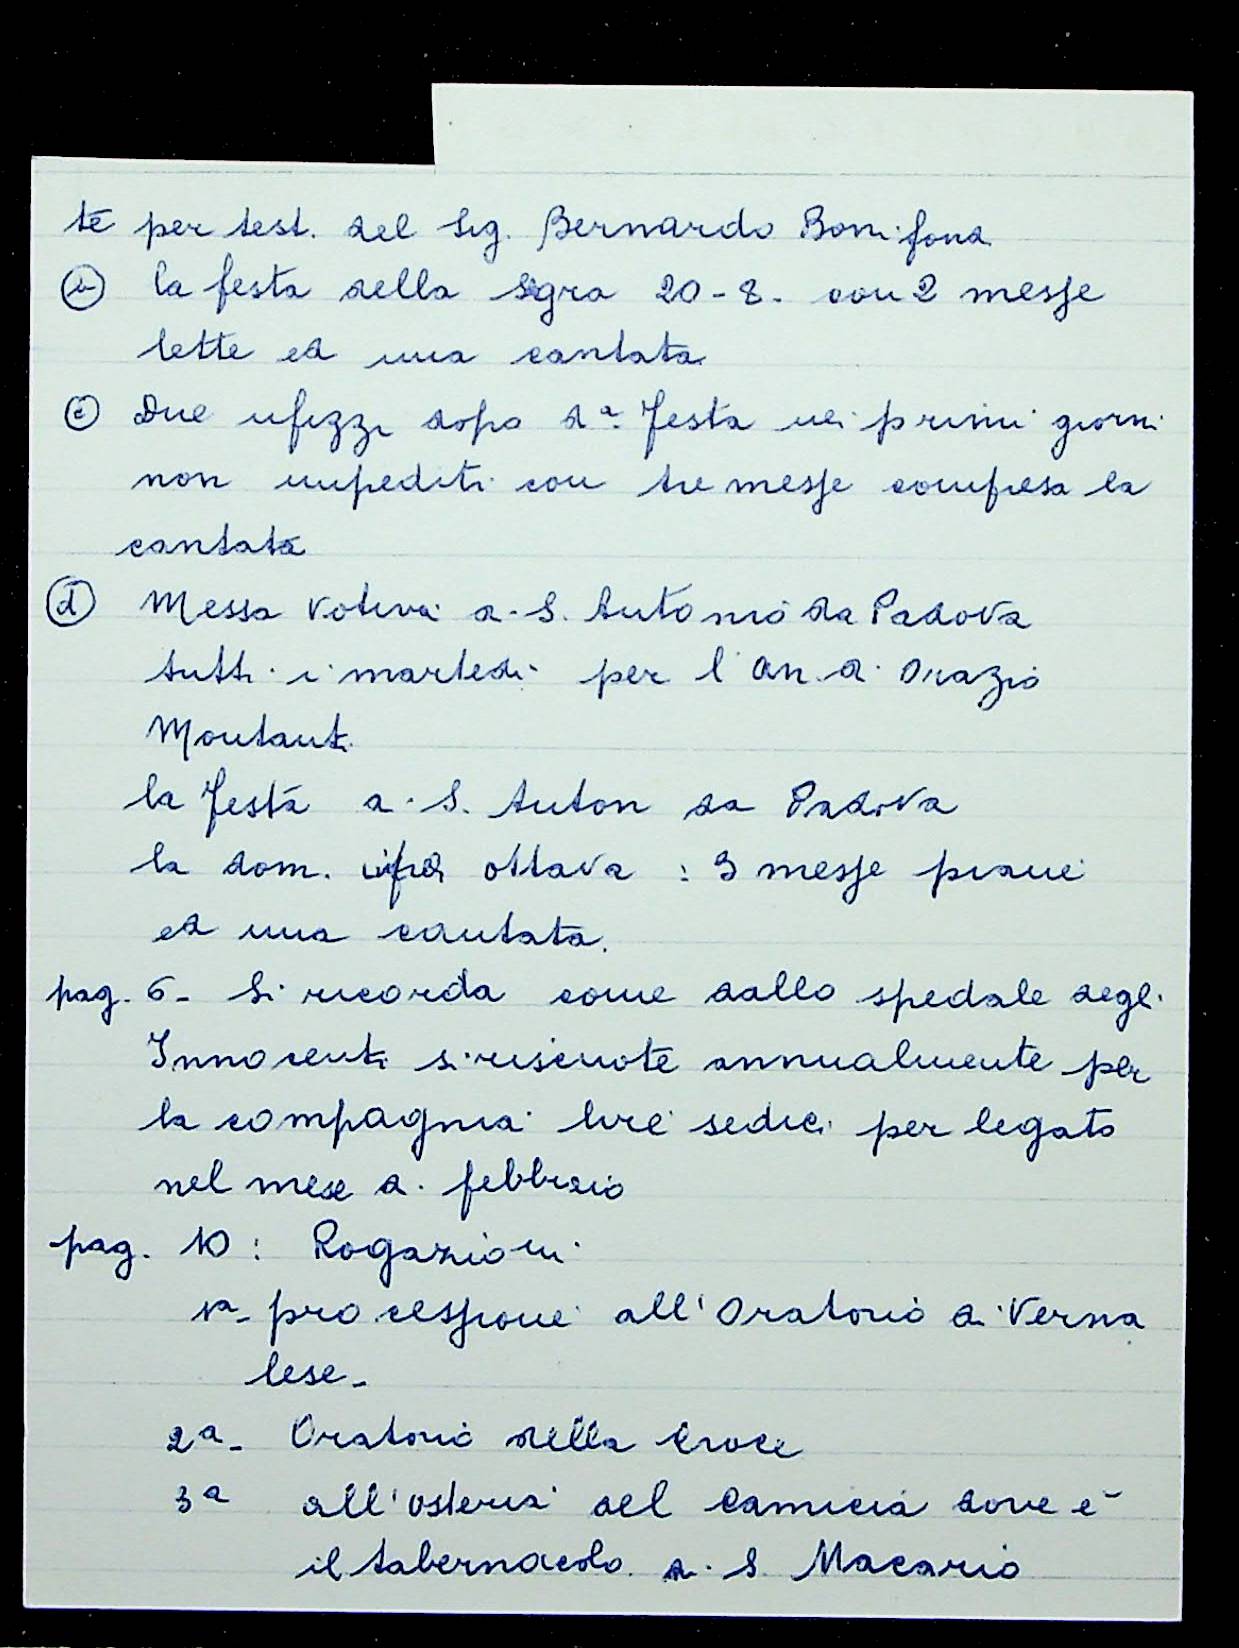 te per test. del Sig. Bernardo Bonifond
(b) la festa della Sagra 20-8. con 2 messe
lette ed una cantata
(c) Due ufizzi dopo da. festa nei primi giorni
non impediti con tre messe compresa la
cantata
(d) Messa votiva a S. Antonio da Padova
tutti i martedi per l'an. di Orazio
Montauti
la festa di S. Anton da Padova
la dom. infra ottava : 3 messe piane
ed una cantata.
pag. 6- Si ricorda come dallo spedale degli
Innocenti si riscuote annualmente per
la compagnia lire sedici per legato
nel mese di febbraio
pag. 10 : Rogazioni
1a- processione all'Oratorio di Verna
lese-
2a- Oratorio della Croce
3a all'osteria del Camicia dove è
il tabernacolo di S. Macario